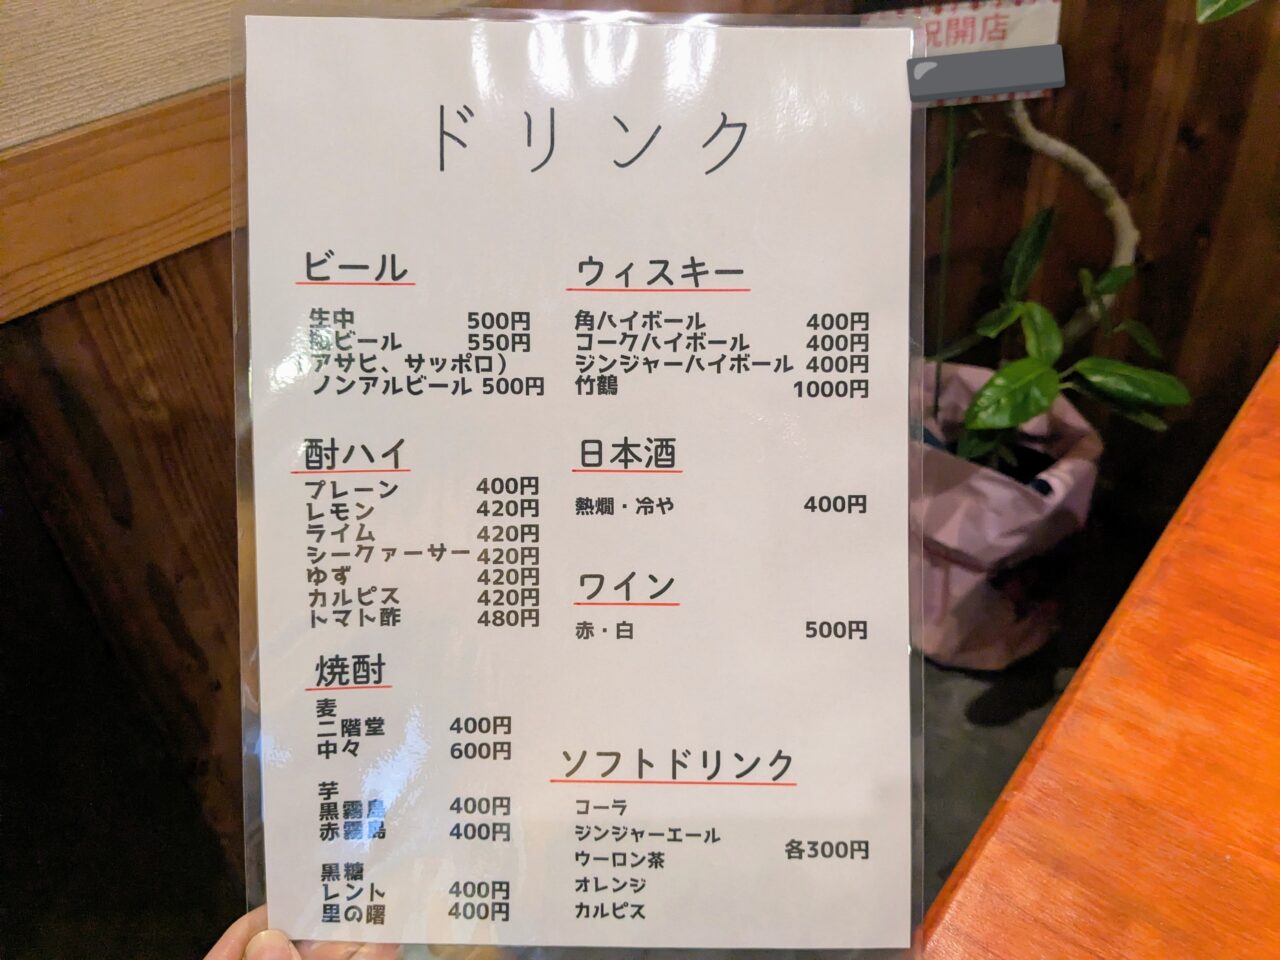 祝開店
ドリンク
ビール
生中 500円
瓶ビール 550円
(アサヒ、サッポロ)
ノンアルビール 500円
酎ハイ
プレーン 400円
レモン 420円
ライム 420円
シークァーサー 420円
ゆず 420円
カルピス 420円
トマト酢 480円
焼酎
麦
二階堂 400円
中々 600円
芋
黒霧島 400円
赤霧島 400円
黒糖
レント 400円
里の曙 400円
ウィスキー
角ハイボール 400円
コークハイボール 400円
ジンジャーハイボール 400円
竹鶴 1000円
日本酒
熱燗・冷や 400円
ワイン
赤・白 500円
ソフトドリンク
コーラ
ジンジャーエール
ウーロン茶 各300円
オレンジ
カルピス